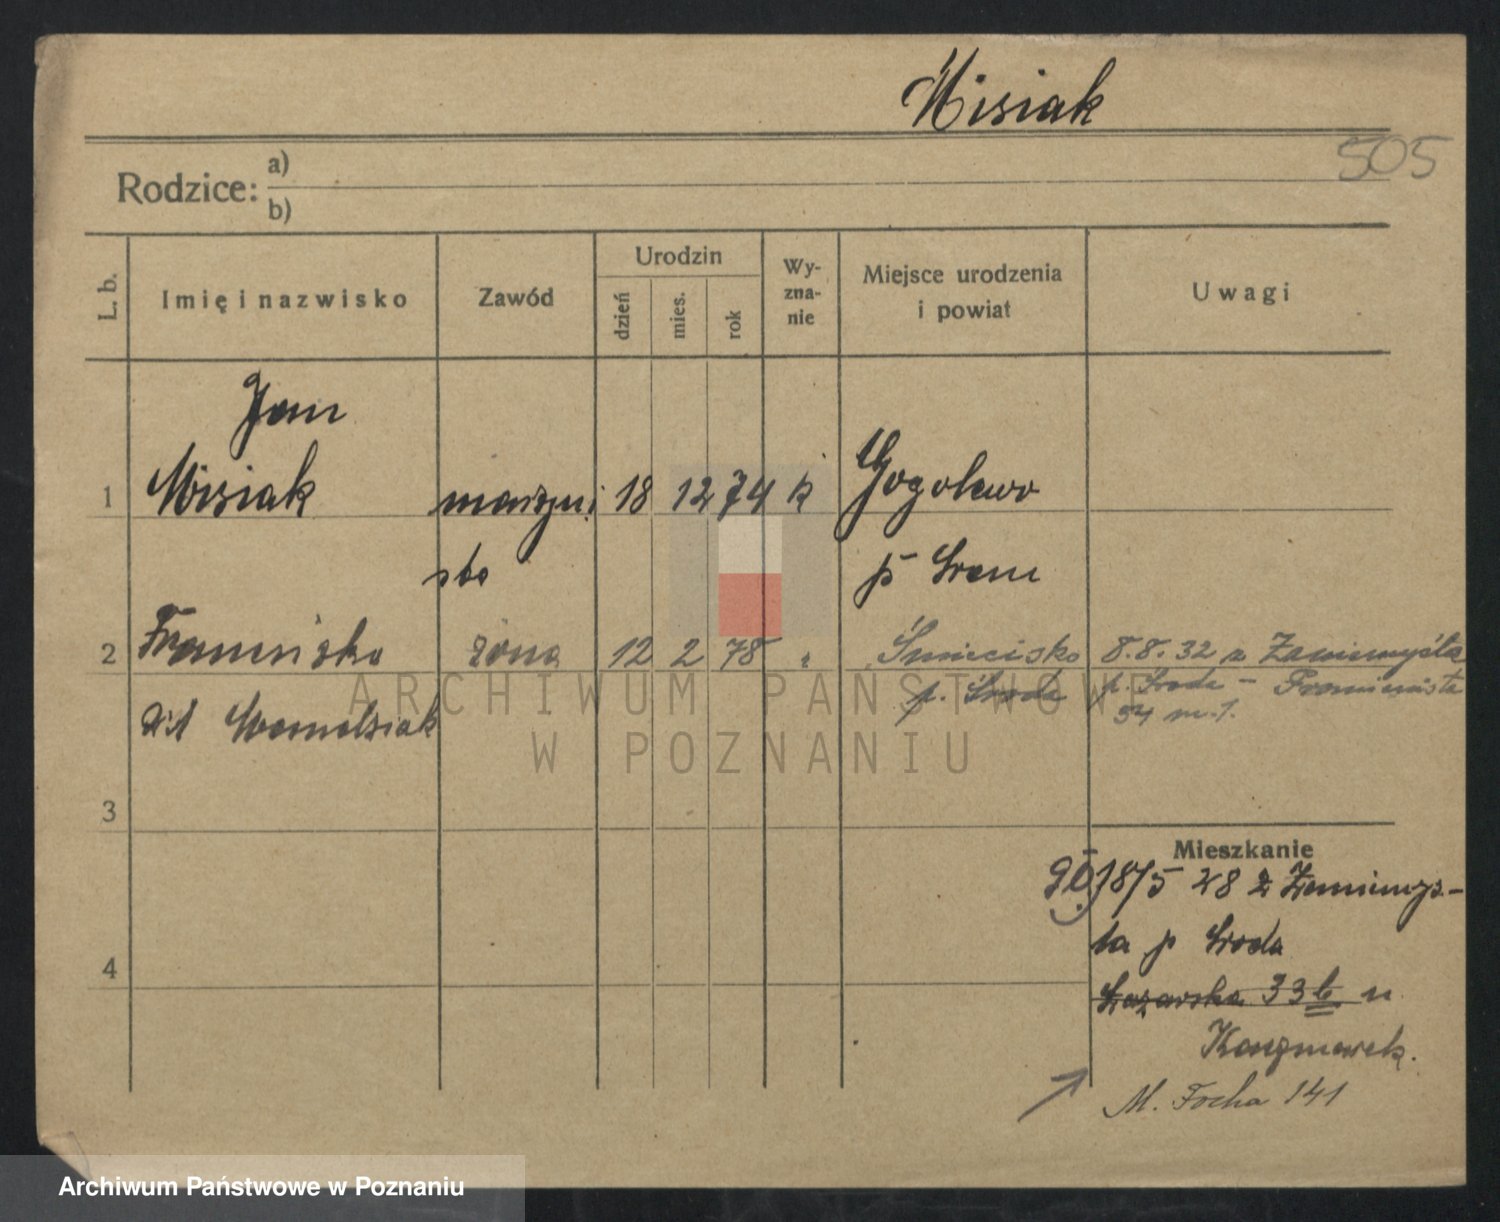 Misiak
505
Rodzice:
a)
b)
L. b.
Imię i nazwisko
Zawód
Urodzin
dzień
mies.
rok
Wy-
zna-
nie
Miejsce urodzenia
i powiat
Uwagi
Jan
1 Misiak maszyni 18 12 74 k Gogolewo
sta p Śrem
2 Franciszka żona 12 2 78 " Śnieciska 8.8.32 z Zaniemyśla
p. Środa p. Środa -
54 m. 1.
3
4
Mieszkanie
18/5 28 z Zaniemyś-
la p Środa
Łazarska 33b u
Kaczmarek.
M. Focha 141
ARCHIWUM PAŃSTWOWE
W POZNANIU
Archiwum Państwowe w Poznaniu